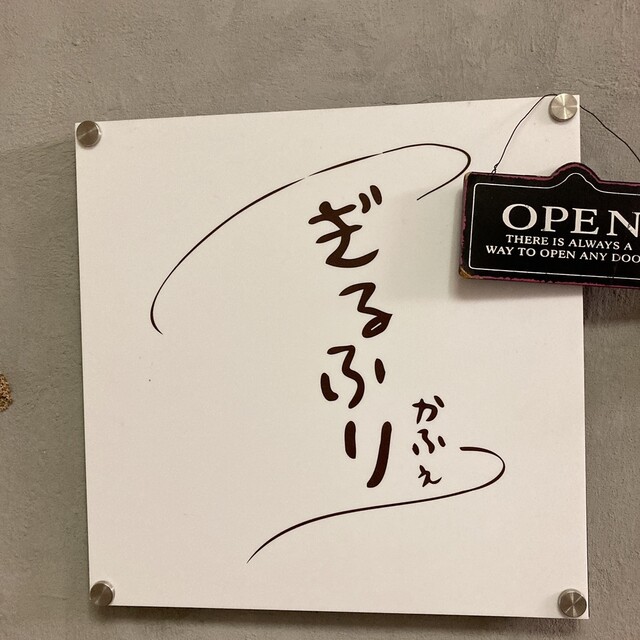 ぎるふり
かふぇ
OPEN
THERE IS ALWAYS A
WAY TO OPEN ANY DOO